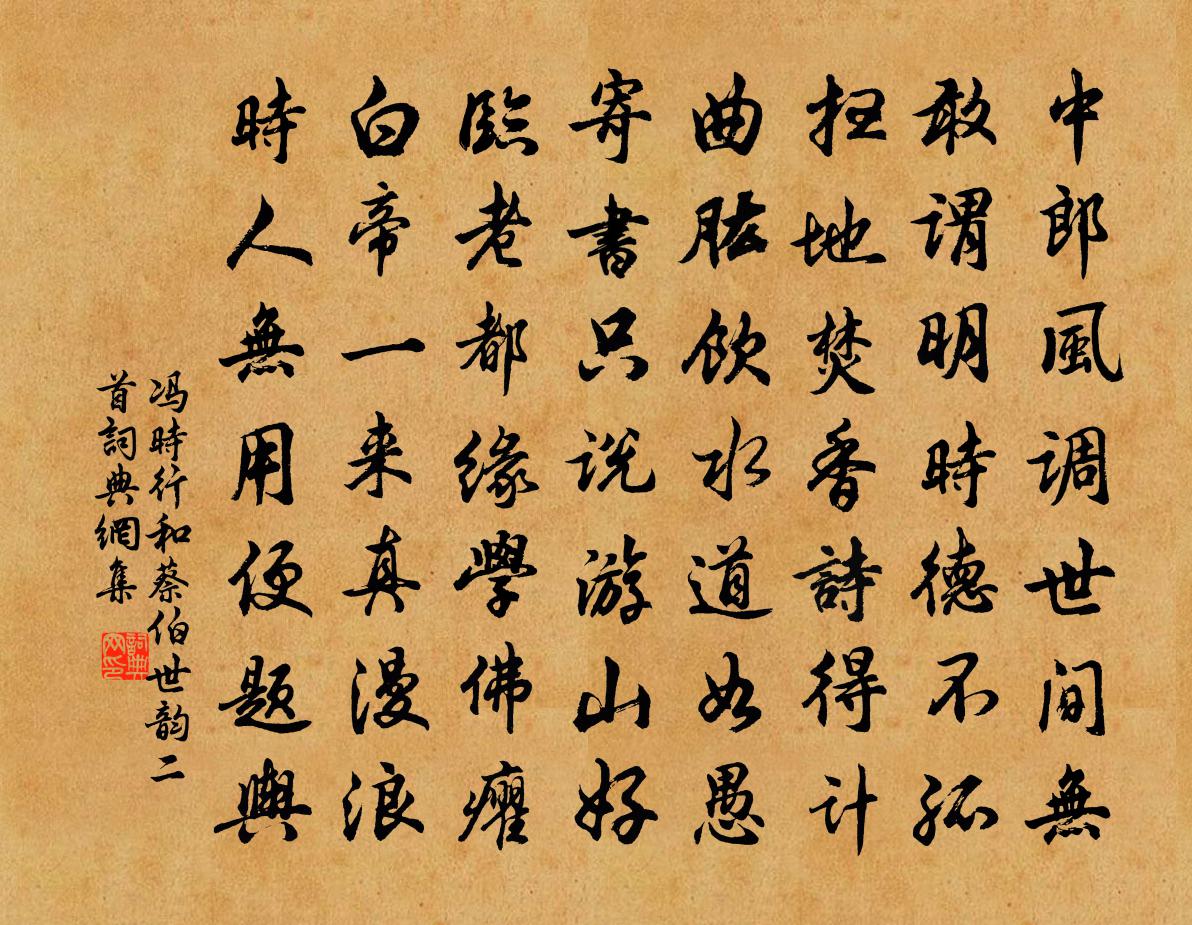 中郎風调世间無
敢謂明時德不孤
扫地焚香詩得计
曲肱飲水道如愚
寄書只説游山好
臨老都缘學佛癯
白帝一来真漫浪
時人無用便题輿
冯時行和蔡伯世韵二
首詞典網集
詞典
网印